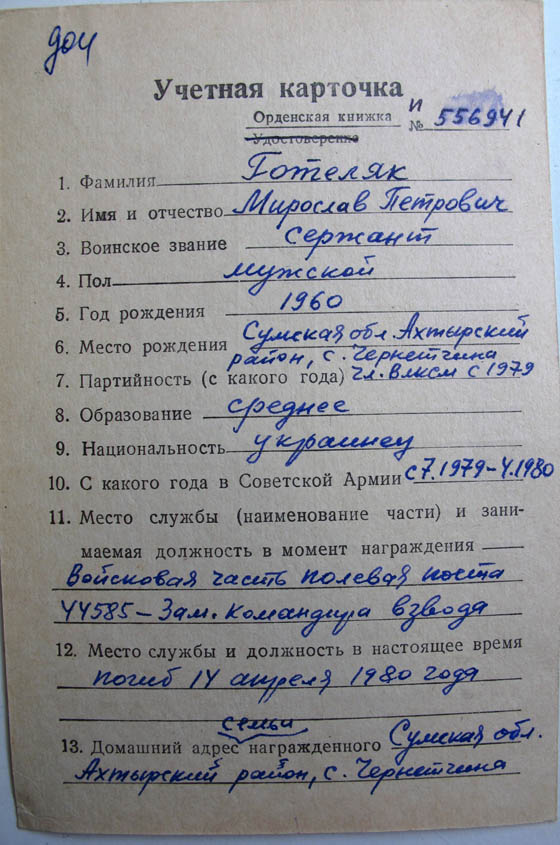 доч
Учетная карточка
Орденская книжка И № 556941
Удостоверение
1. Фамилия Готеляк
2. Имя и отчество Мирослав Петрович
3. Воинское звание сержант
4. Пол мужской
5. Год рождения 1960
6. Место рождения Сумская обл. Ахтырский
район, с. Чернетчина
7. Партийность (с какого года) чл. Влксм с 1979
8. Образование среднее
9. Национальность украинец
10. С какого года в Советской Армии с 7.1979-4.1980
11. Место службы (наименование части) и зани-
маемая должность в момент награждения
Войсковая часть полевая почта
44585 - Зам. командира взвода
12. Место службы и должность в настоящее время
погиб 14 апреля 1980 года
семьи
13. Домашний адрес награжденного Сумская обл.
Ахтырский район, с. Чернетчина